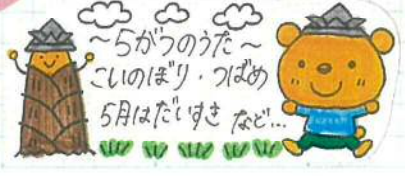 ～5がつのうた～
こいのぼり・つばめ
5月はだいすき など…